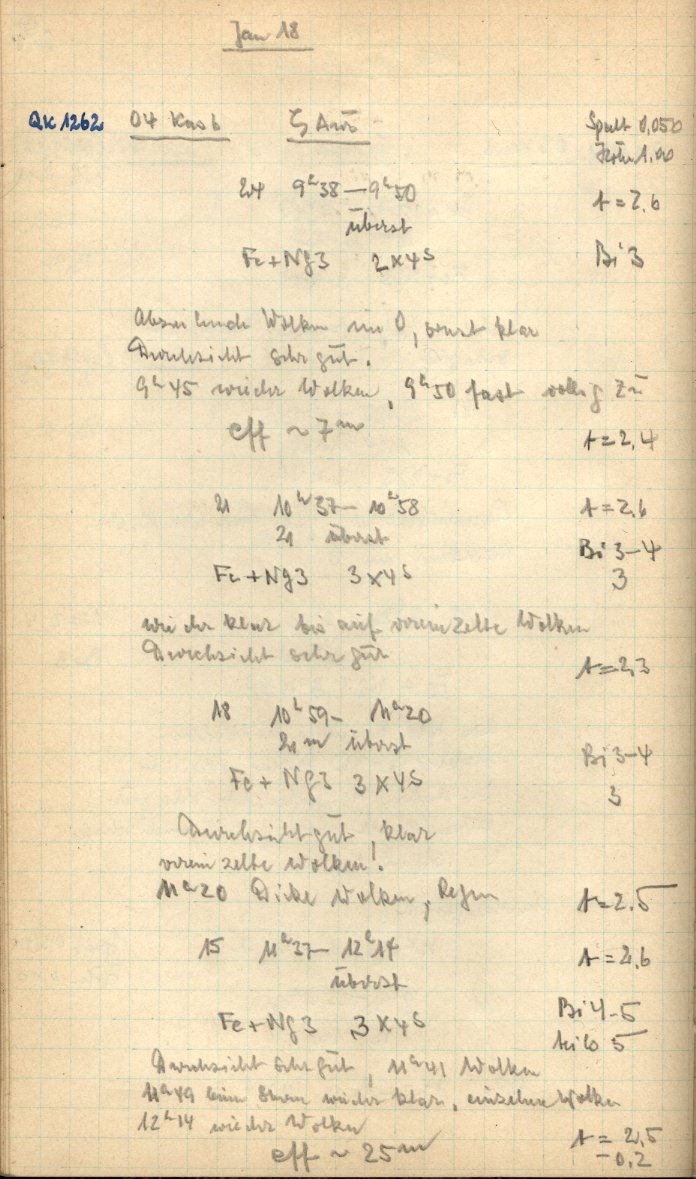 Jan 18
QK 1262 04 Kas b ζ Aur Spalt 0,050
1.00
24 9h38 — 9h50 t = 2.6
überst
Fe + Ng3 2 x 4s Bi 3
Abziehende Wolken im O, sonst klar
Durchsicht sehr gut.
9h45 wieder Wolken, 9h50 fast völlig zu
eff ~ 7m t = 2,4
21 10h37 — 10h58 t = 2,6
21 überst Bi 3-4
Fe + Ng3 3 x 4s 3
wieder klar bis auf vereinzelte Wolken
Durchsicht sehr gut t = 2,3
18 10h59 — 11h20
21m überst Bi 3-4
Fe + Ng3 3 x 4s 3
Durchsicht gut, klar
vereinzelte Wolken!
11h20 Dicke Wolken, Regen t = 2.5
15 11h37 — 12h14 t = 2,6
überst
Fe + Ng3 3 x 4s Bi 4-5
5
Durchsicht sehr gut, 11h41 Wolken
11h49 beim Stern wieder klar, einzelne Wolken
12h14 wieder Wolken t = 2,5
eff ~ 25m -0,2